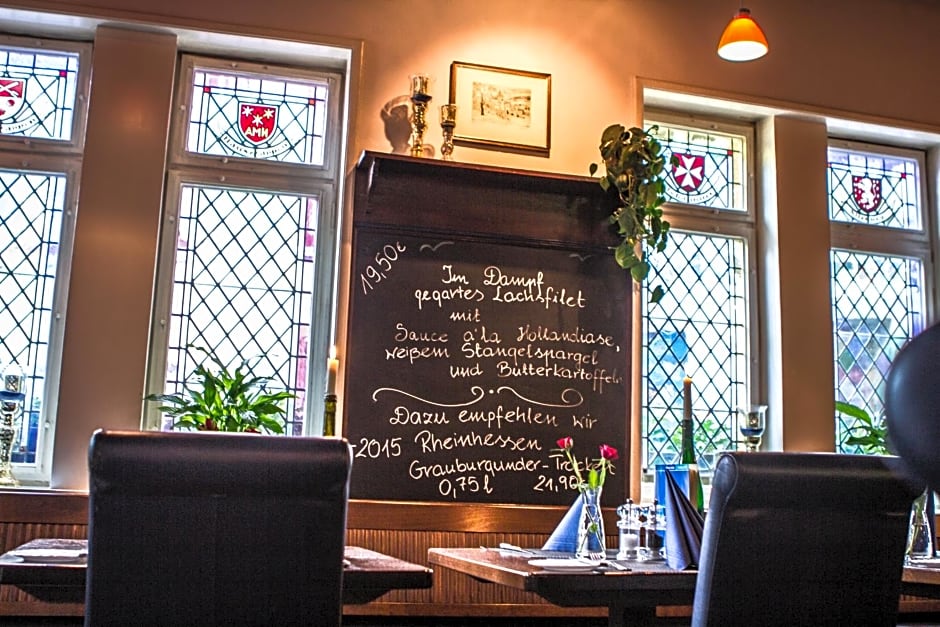 19,50€
Im Dampf
gegartes Lachsfilet
mit
Sauce a'la Hollandiase,
weißem Stangelspargel
und Butterkartoffeln
Dazu empfehlen wir
2015 Rheinhessen
Grauburgunder-
0,75l 21,90€
AMH